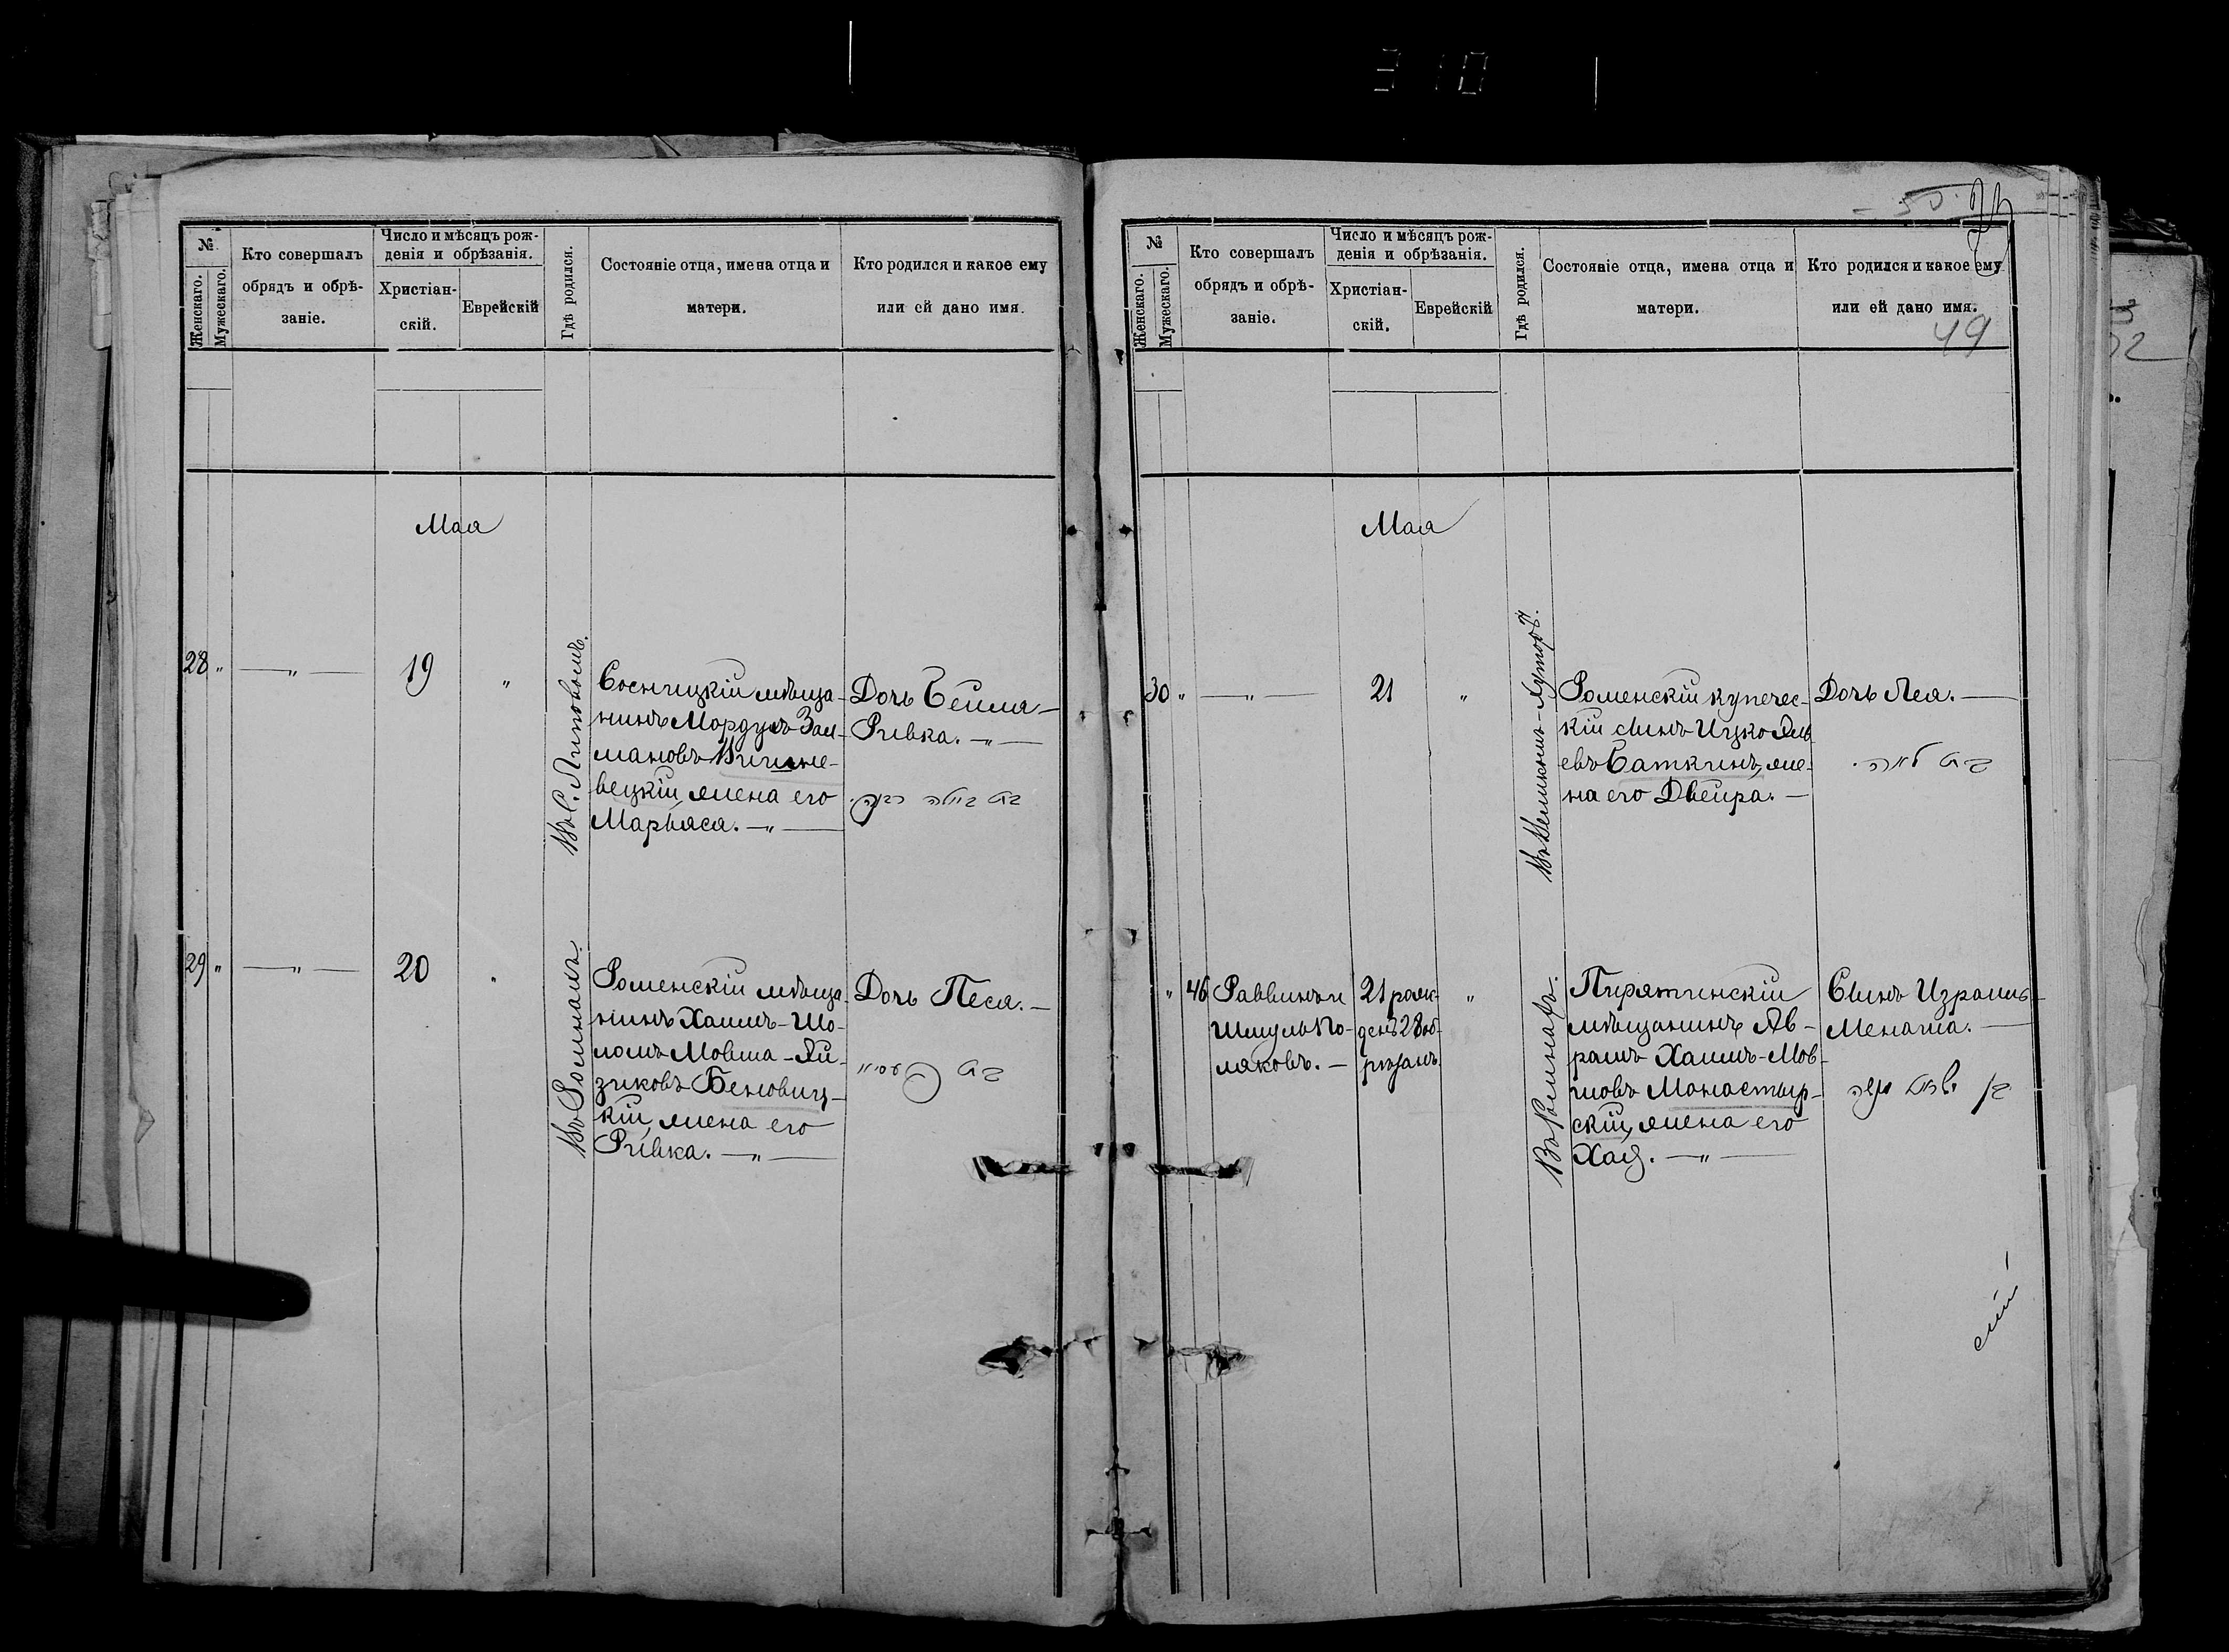 310
№
Женскаго.
Мужескаго.
Кто совершалъ
обрядъ и обрѣ-
заніе.
Число и мѣсяцъ рож-
денія и обрѣзанія.
Христіан-
скій.
Еврейскій
Гдѣ родился.
Состояніе отца, имена отца и
матери.
Кто родился и какое ему
или ей дано имя.
Мая
28 „
— „ —
19
„
Въ с. Липовомъ.
Сосницкій мѣща-
нинъ Мордухъ Зал-
мановъ Вишне-
вецкій, жена его
Марьяся. — „ —
Дочь Бейля-
Ривка. — „ —
בת ביילה רבקה.
29 „
— „ —
20
„
Въ Ромнахъ.
Роменскій мѣща-
нинъ Хаимъ-Шо-
ломъ Мовша-Ай-
зиковъ Беновиц-
кій, жена его
Ривка. — „ —
Дочь Песя. —
בת פעסיא
50.
№
Женскаго.
Мужескаго.
Кто совершалъ
обрядъ и обрѣ-
заніе.
Число и мѣсяцъ рож-
денія и обрѣзанія.
Христіан-
скій.
Еврейскій
Гдѣ родился.
Состояніе отца, имена отца и
матери.
Кто родился и какое ему
или ей дано имя.
49
Мая
30 „
— „ —
21
„
Роменскій купечес-
кій сынъ Ицко
евъ Баткинъ, же-
на его Двейра. —
Дочь Лея. —
בת לאה.
„ 46
Раввинъ и
Шмуль По-
ляковъ. —
21 рож-
денъ 28 об-
рѣзанъ.
„
Въ Ромнахъ.
Пирятинскій
мѣщанинъ Аб-
рамъ Хаимъ-Мов-
шовъ Монастыр-
скій, жена его
Хая. — „ —
Сынъ Израиль-
Менаша. —